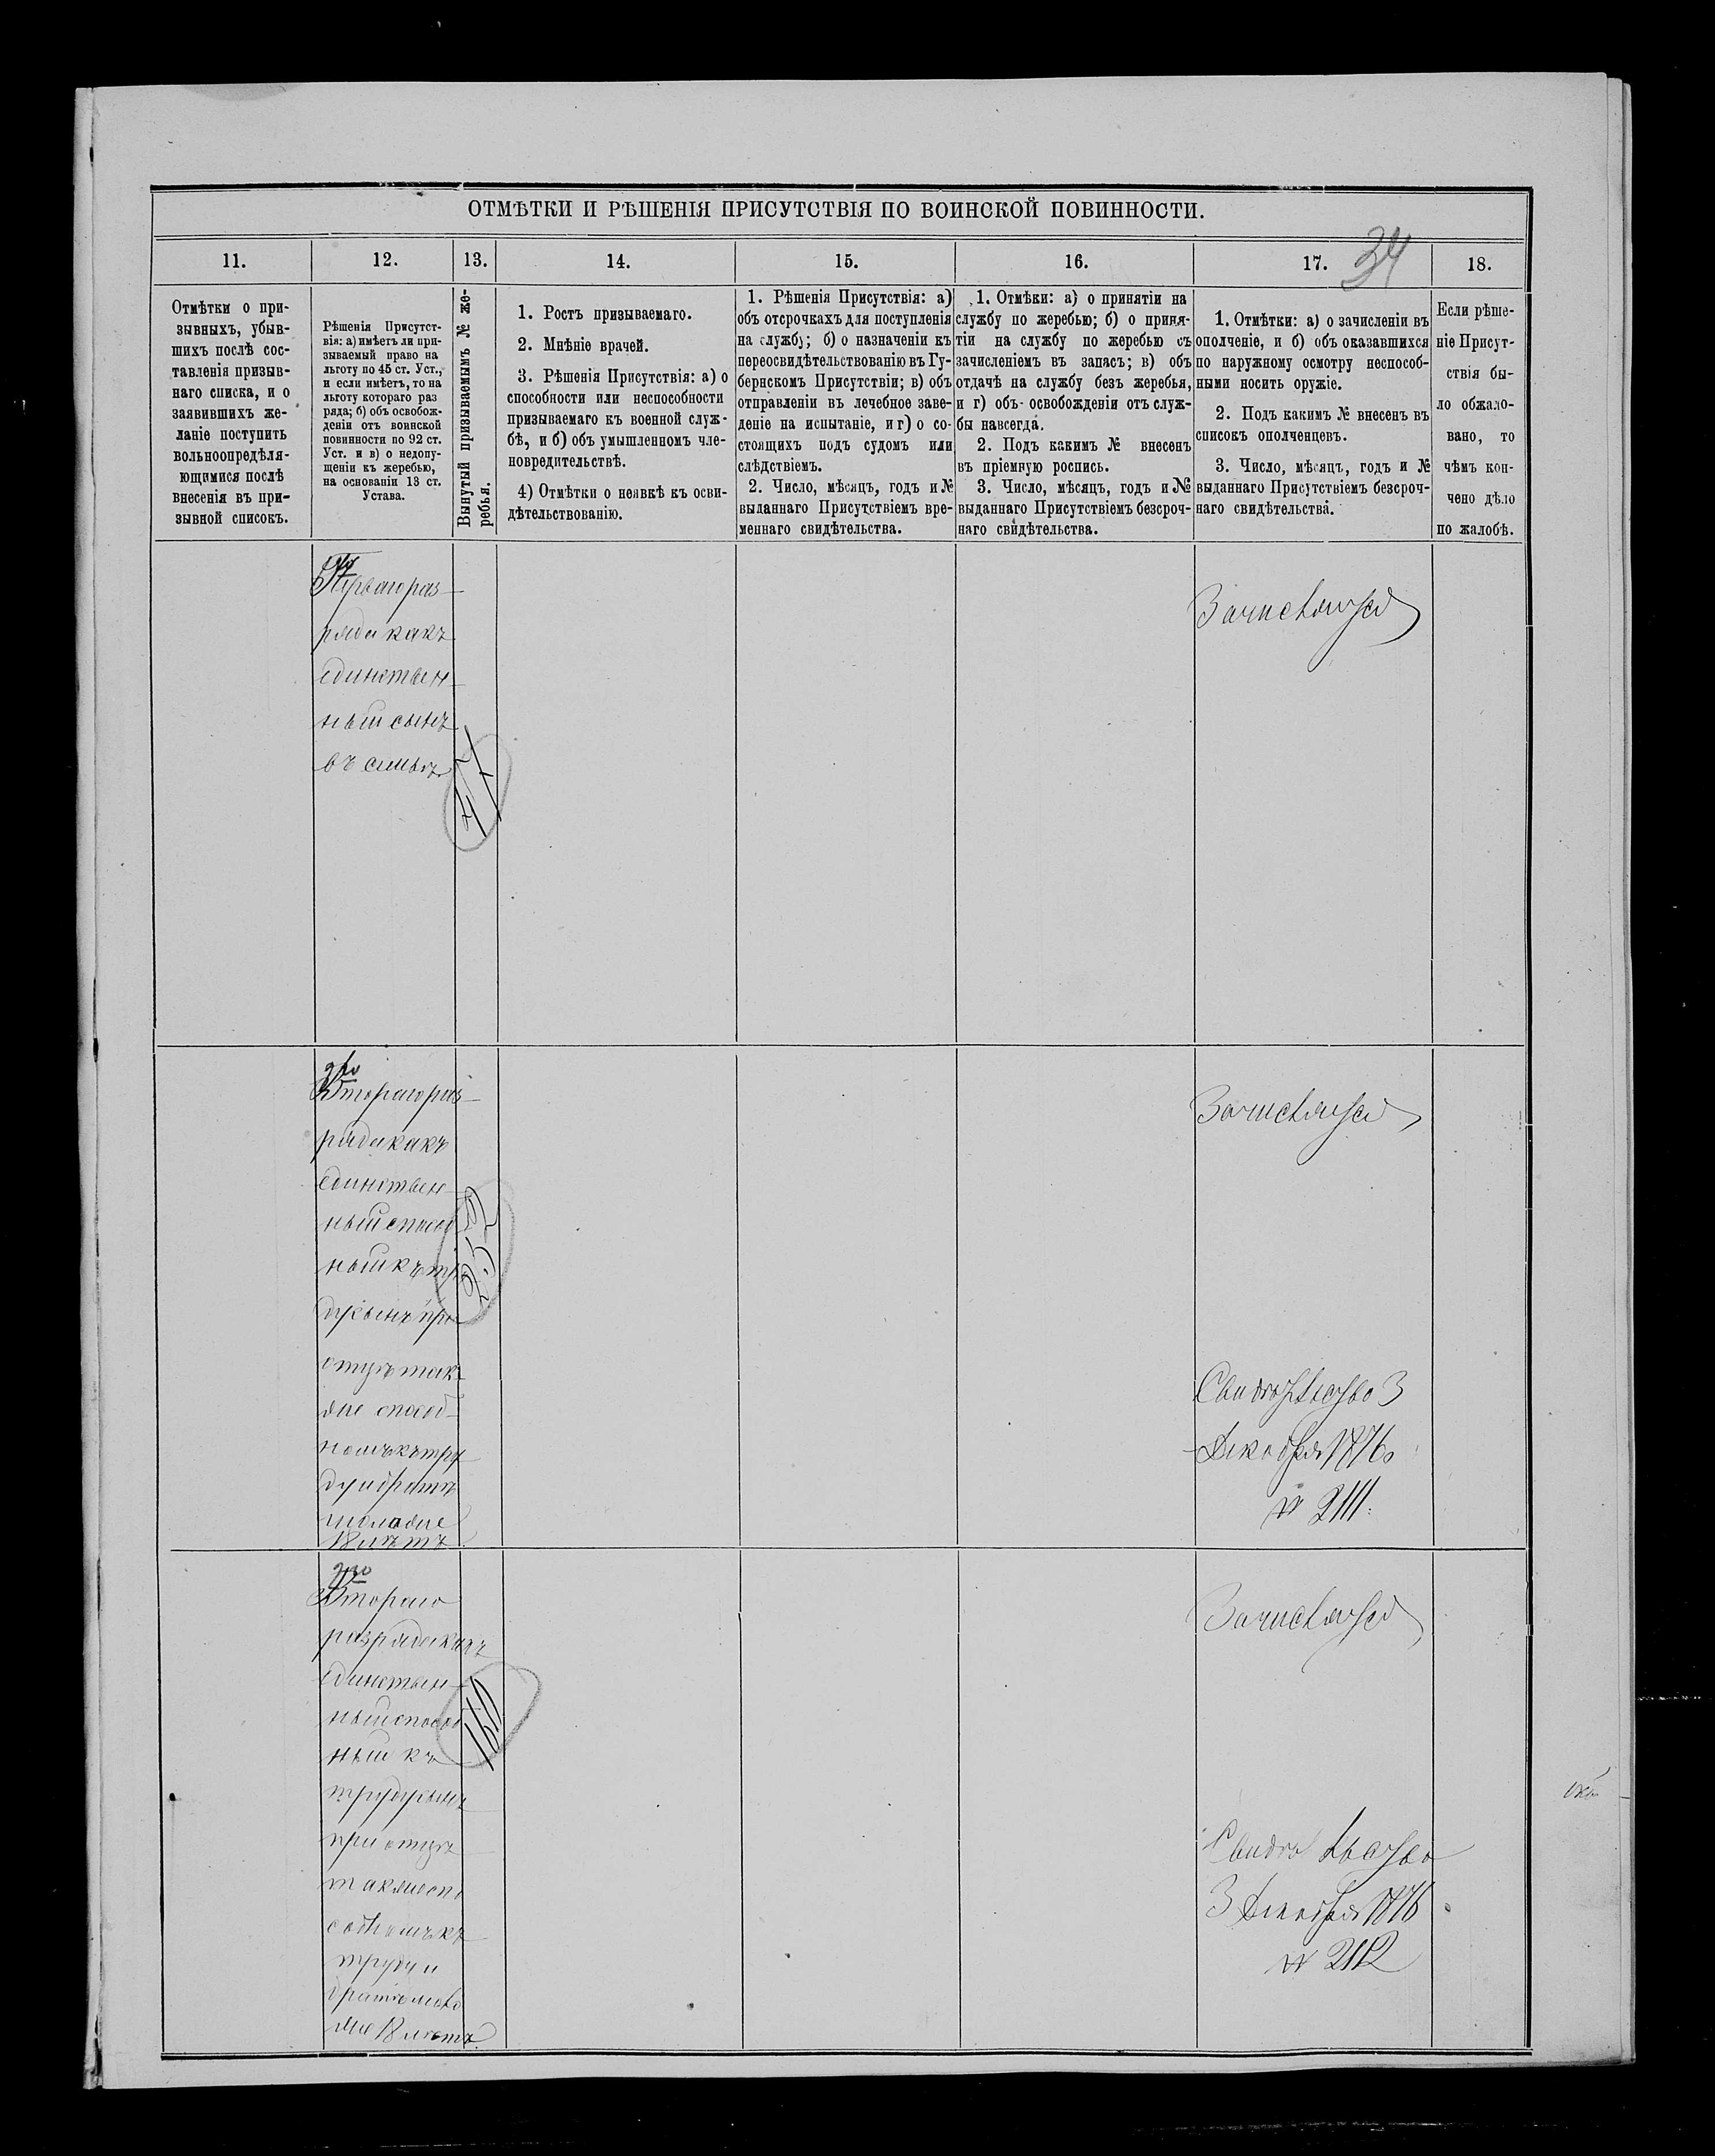 ОТМѢТКИ И РѢШЕНІЯ ПРИСУТСТВІЯ ПО ВОИНСКОЙ ПОВИННОСТИ.
34
11.
12.
13.
14.
15.
16.
17.
18.
Отмѣтки о при-
зывныхъ, убыв-
шихъ послѣ сос-
тавленія призыв-
наго списка, и о
заявившихъ же-
ланіе поступить
вольноопредѣля-
ющимися послѣ
внесенія въ при-
зывной списокъ.
Рѣшенія Присутст-
вія: а) имѣетъ ли при-
зываемый право на
льготу по 45 ст. Уст.,
и если имѣетъ, то на
льготу котораго раз
ряда; б) объ освобож-
деніи отъ воинской
повинности по 92 ст.
Уст. и в) о недопу-
щеніи къ жеребью,
на основаніи 13 ст.
Устава.
Вынутый призываемымъ № же-
ребья.
1. Ростъ призываемаго.
2. Мнѣніе врачей.
3. Рѣшенія Присутствія: а) о
способности или неспособности
призываемаго къ военной служ-
бѣ, и б) объ умышленномъ чле-
новредительствѣ.
4) Отмѣтки о неявкѣ къ осви-
дѣтельствованію.
1. Рѣшенія Присутствія: а)
объ отсрочкахъ для поступленія
на службу; б) о назначеніи къ
переосвидѣтельствованію въ Гу-
бернскомъ Присутствіи; в) объ
отправленіи въ лечебное заве-
деніе на испытаніе, и г) о со-
стоящихъ подъ судомъ или
слѣдствіемъ.
2. Число, мѣсяцъ, годъ и №
выданнаго Присутствіемъ вре-
меннаго свидѣтельства.
1. Отмѣки: а) о принятіи на
службу по жеребью; б) о приня-
тіи на службу по жеребью съ
зачисленіемъ въ запасъ; в) объ
отдачѣ на службу безъ жеребья,
и г) объ освобожденіи отъ служ-
бы навсегда.
2. Подъ какимъ № внесенъ
въ пріемную роспись.
3. Число, мѣсяцъ, годъ и №
выданнаго Присутствіемъ безсроч-
наго свидѣтельства.
1. Отмѣтки: а) о зачисленіи въ
ополченіе, и б) объ оказавшихся
по наружному осмотру неспособ-
ными носить оружіе.
2. Подъ какимъ № внесенъ въ
списокъ ополченцевъ.
3. Число, мѣсяцъ, годъ и №
выданнаго Присутствіемъ безсроч-
наго свидѣтельства.
Если рѣше-
ніе Присут-
ствія бы-
ло обжало-
вано, то
чѣмъ кон-
чено дѣло
по жалобѣ.
Перваго раз-
ряда какъ
единствен-
ный сынъ
въ семьѣ
Зачисляется
Втораго раз-
ряда какъ
единствен-
ный способ
ный къ тру
ду сынъ при
отцѣ так
же способ-
номъ къ тру
ду и братѣ
моложе
18 лѣтъ
Зачисляется
3
Декабря 1876
№ 2111.
Втораго
разряда какъ
единствен-
ный способ
ный къ
труду сынъ
при отцѣ
также спо
собномъ къ
труду и
братѣ моло
же 18 лѣтъ
160
Зачисляется
3 Декабря 1876
№ 2112